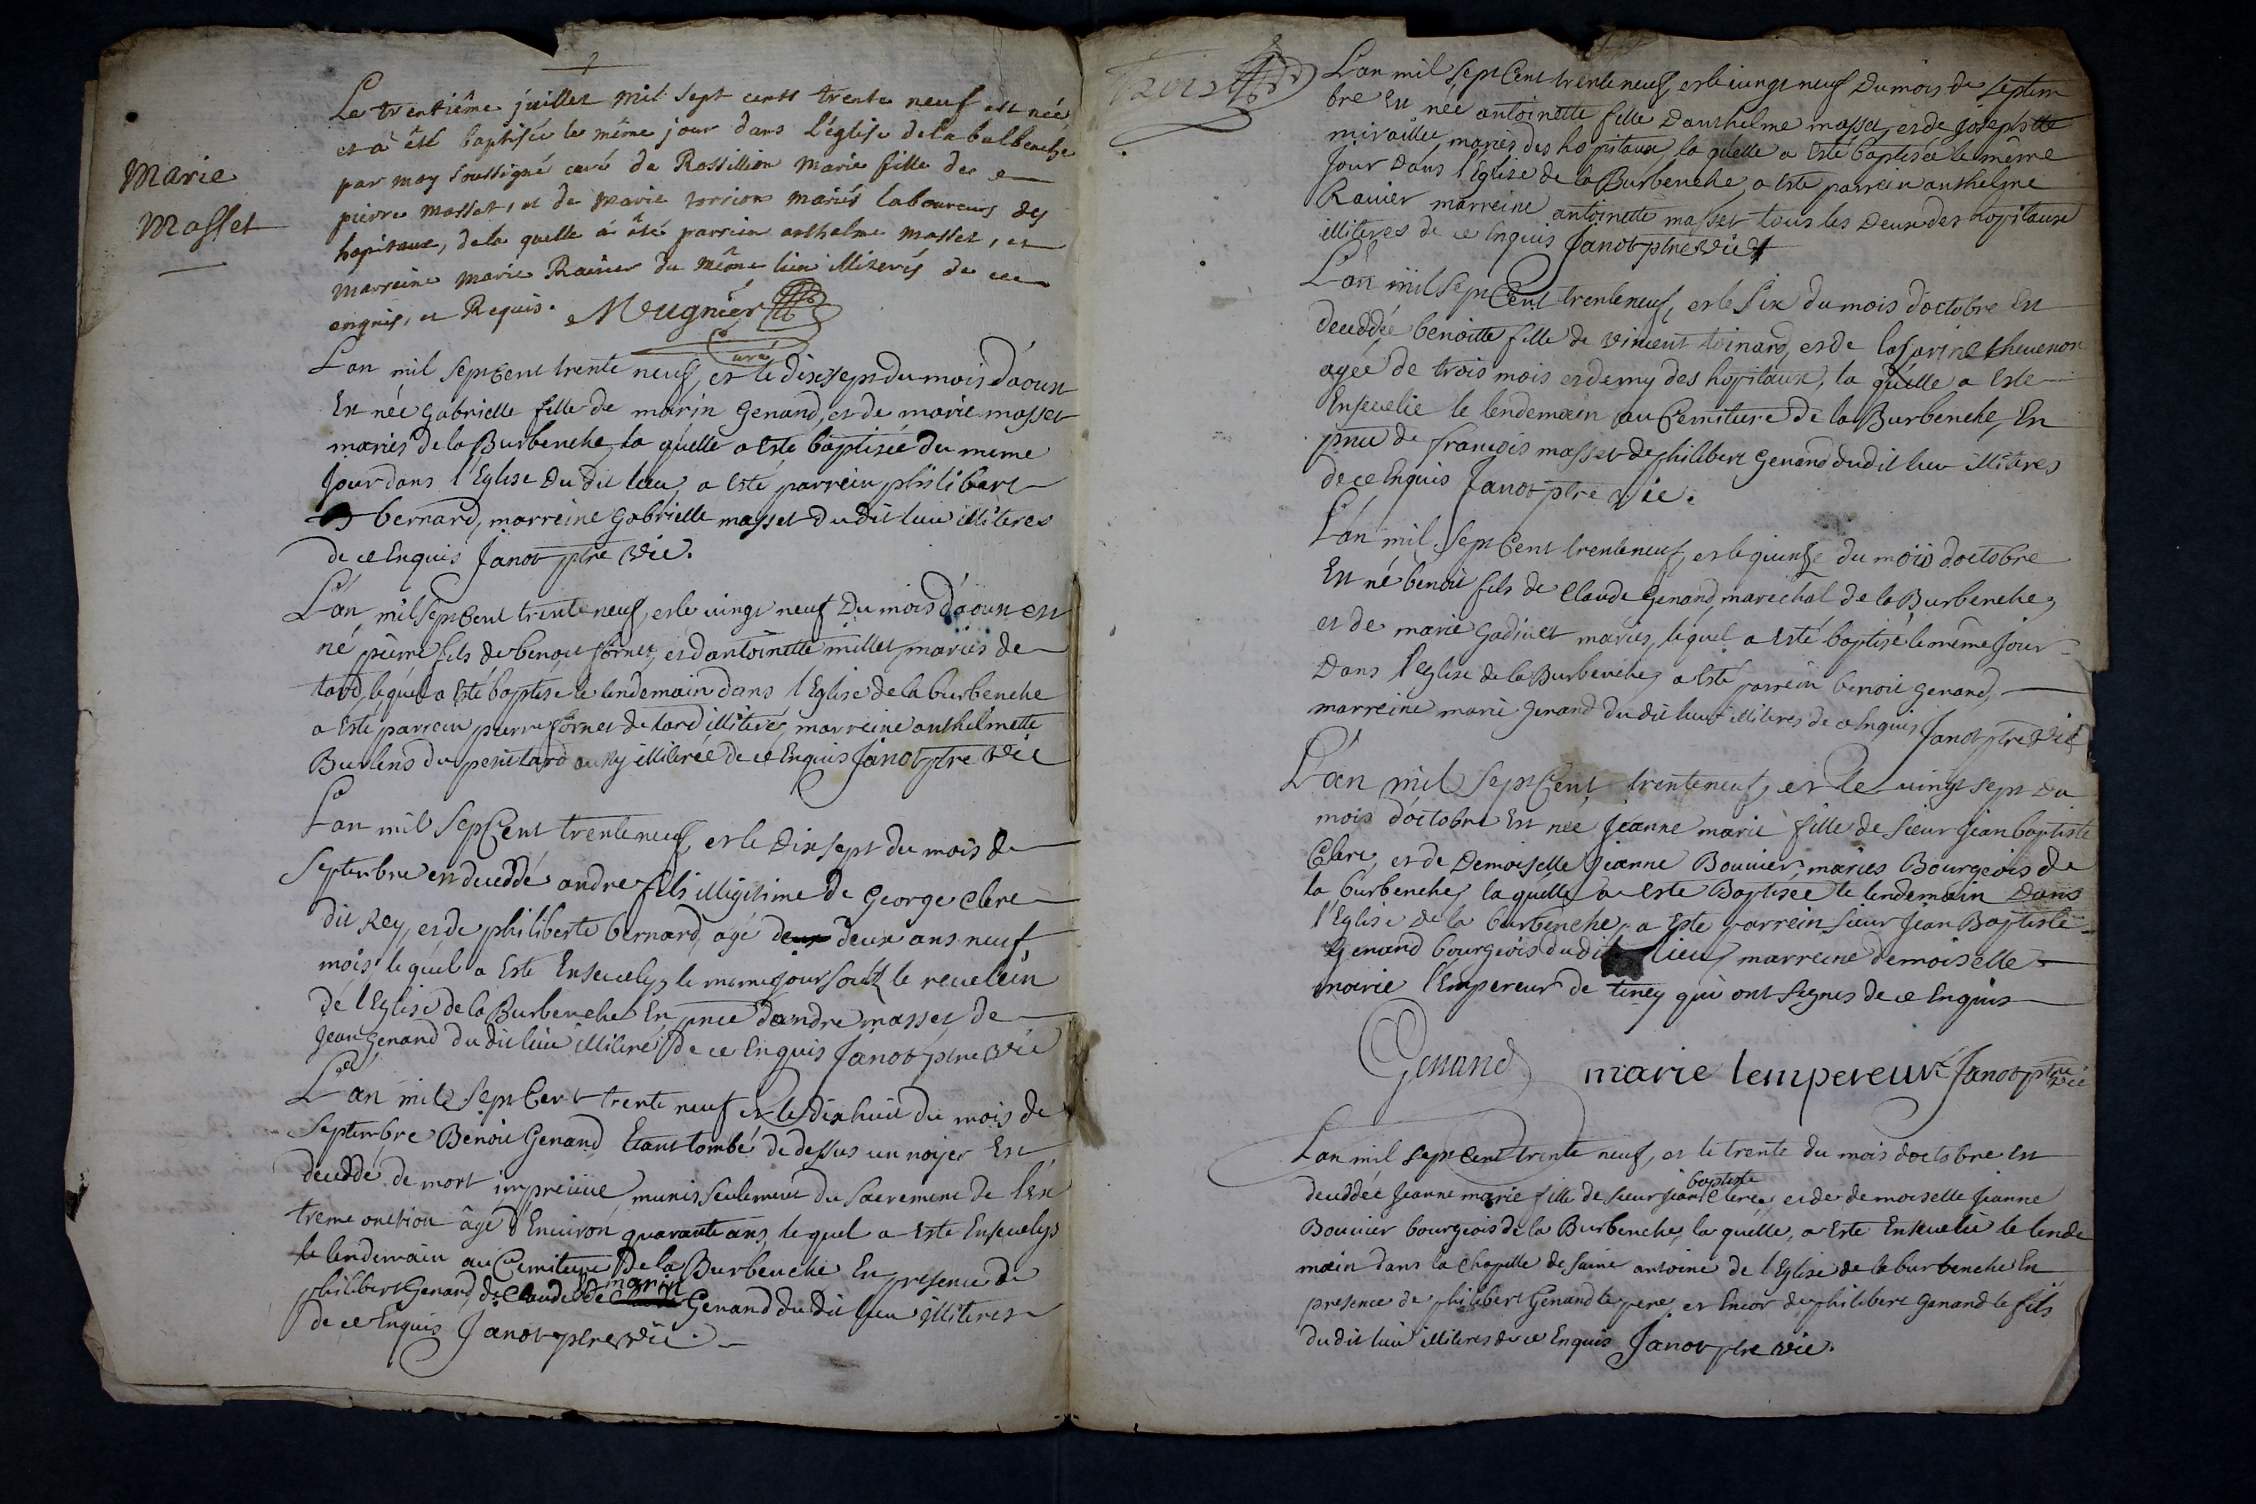 Marie
Masset
Le trentiême juillet mil sept cents trente neuf est née
et à êté baptisée le même jour dans l'église de la balbenche
par moy soussigné curé de Rossillion Marie fille de
pierre masset, et de marie torrion mariés laboureurs des
hopitaux, de la quelle à êté parrein anthelme masset, et
marreine marie Rainier du même lieu illiterés de ce
enquis, et Requis. Meugnier
curé
L'an mil sept Cent trente neuf, et le dixsept du mois d'aoust
Est née Gabrielle fille de marin Genand, et de marie masset
mariés de la Burbenche, la quelle a esté baptisée du meme
Jour dans l'Eglise Du dit lieu, a esté parrein philibert
bernard, marreine Gabrielle masset du dit lieu illiteres
de ce Enquis Janot ptre vic.
L'an mil sept Cent trente neuf, et le vingt neuf Du mois d'aoust est
né pierre fils de benoit fornet, et d'antoinette millet, mariés de
tard, lequel a esté baptisé le lendemain dans l'Eglise de la burbenche
a esté parrein pierre fornet de tard illiteré, marreine anthelmette
Burlens du petit tard aussy illiterée de ce Enquis Janot ptre vic
L'an mil sept Cent trente neuf, et le dix sept du mois de
Septembre est deceddé andre fils illigitime de George Clerc
dit Rey, et de philiberte bernard, agé deux deux ans neuf
mois, le quel a este Ensevely, le meme jour soub le revelein
de l'Eglise de la Burbenche En pnce d'andre masset, de
Jean Genand du dit lieu illiteré, de ce Enquis Janot ptre vic
L'an mil sept Cent trente neuf et le dix huit du mois de
Septembre Benoit Genand Etant tombé de dessus un noyer Est
deceddé de mort impreüüe munis seulement du sacrement de l'ex
treme onction âgé d'Environ quarante ans, le quel a este Ensevelys
le lendemain au Cemitiere De la Burbenche En presence de
marin
philibert Genand, de Claude de Genand du dit lieu illiteres
de ce Enquis Janot ptre vic.
Trois
L'an mil sept Cent trente neuf, et le vingt neuf Du mois de Septem
bre est née antoinette fille D'anthelme masset, et de Josephtte
miraillet, mariés des hopitaux, la quelle a esté baptisée le même
Jour Dans l'Eglise de la Burbenche, a esté parrein anthelme
Ravier marreine antoinette masset tous les deux des hopitaux
illiteres de ce Enquis Janot ptre vic
L'an mil sept Cent trente neuf, et le six du mois d'octobre Est
deceddée benoitte fille de vincent toinard, et de lasarine thevenon
agée de trois mois et demy des hopitaux, la quelle a este
Ensevelie le lendemain au Cemitiere de la Burbenche, En
pnce de françois masset de philibert Genand dudit lieu illiteres
de ce Enquis Janot ptre vic.
L'an mil sept Cent trente neuf, et le quinse du mois d'octobre
Est né benoit fils de Claude Genand, marechal de la Burbenche,
et de marie Gadivet mariés, lequel a esté baptisé le même Jour
Dans l'Eglise de la Burbenche, a esté parrein benoit genand,
marreine marie Genand du dit lieu illiteres de ce Enquis Janot ptre vic
L'an mil sept Cent trente neuf, et le vingt sept du
mois d'octobre Est née Jeanne marie fille de sieur Jean baptiste
Clerc, et de Demoiselle Jeanne Bouvier, mariés Bourgeois de
la burbenche, la quelle a este Baptisée le lendemain Dans
l'Eglise de la burbenche, a este parrein sieur Jean Baptiste
Genand bourgeois du dit lieu, marreine demoiselle
marie l'Empereur de teney qui ont signés de ce Enquis
Genand marie lempereur Janot ptre vic
L'an mil sept Cent trente neuf, et le trente du mois d'octobre est
baptiste
deceddée Jeanne marie fille de sieur jean Clerc, et de demoiselle Jeanne
Bouvier bourgeois de la Burbenche, la quelle, a este Ensevelie le lende
main dans la Chapelle de saint antoine de l'Eglise de la burbenche En
presence de philibert Genand le pere, et Encor de philibert Genand le fils
du dit lieu illiteres de ce Enquis Janot ptre vic.